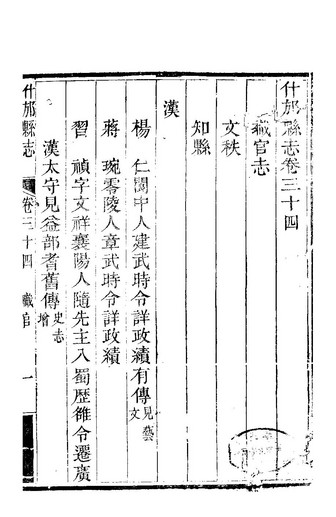 什邡縣志卷三十四
職官志
文秩
知縣
漢
楊 仁閬中人建武時令詳政績有傳見藝文
蔣 琬零陵人章武時令詳政績
習 禎字文祥襄陽人隨先主入蜀歷雒令遷廣
漢太守見益部耆舊傳史志增
什邡縣志 卷三十四 職官 一